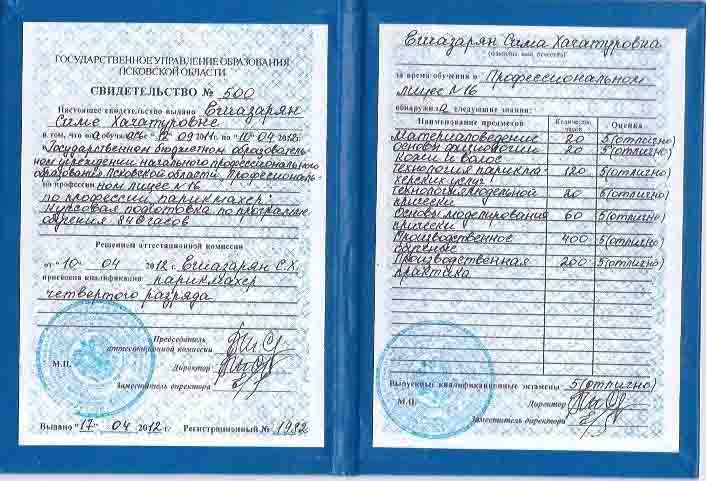 ГОСУДАРСТВЕННОЕ УПРАВЛЕНИЕ ОБРАЗОВАНИЯ
ПСКОВСКОЙ ОБЛАСТИ
СВИДЕТЕЛЬСТВО № 500
Настоящее свидетельство выдано Егиазарян
Симе Хачатуровне
в том, что она обучалась с "12" 09 2011г. по "10" 04 2012г.
Государственном бюджетном образователь-
ном учреждении начального профессионального
образования Псковской области "Профессиональ-
по профессии ном лицее №16
по профессии парикмахер:
курсовая подготовка по программе
обучения 840 часов
Решением аттестационной комиссии
от "10" 04 2012 г. Егиазарян С.Х.
присвоена квалификация парикмахер
четвертого разряда
Председатель
аттестационной комиссии
Директор
М.П.
Заместитель директора
Выдано "17" 04 2012г. Регистрационный № 1982
Егиазарян Сима Хачатуровна
(фамилия, имя, отчество)
за время обучения в Профессиональном
лицее №16
обнаружила следующие знания:
Наименование предметов Количество часов Оценка
Материаловедение 20 5(отлично)
Основы физиологии 20 5(отлично)
кожи и волос
Технология парикма- 120 5(отлично)
херских услуг
Технология модельной 20 5(отлично)
прически
Основы моделирования 60 5(отлично)
прически
Производственное 400 5(отлично)
обучение
Производственная 200 5(отлично)
практика
Выпускные квалификационные экзамены 5(отлично)
М.П.
Директор
Заместитель директора